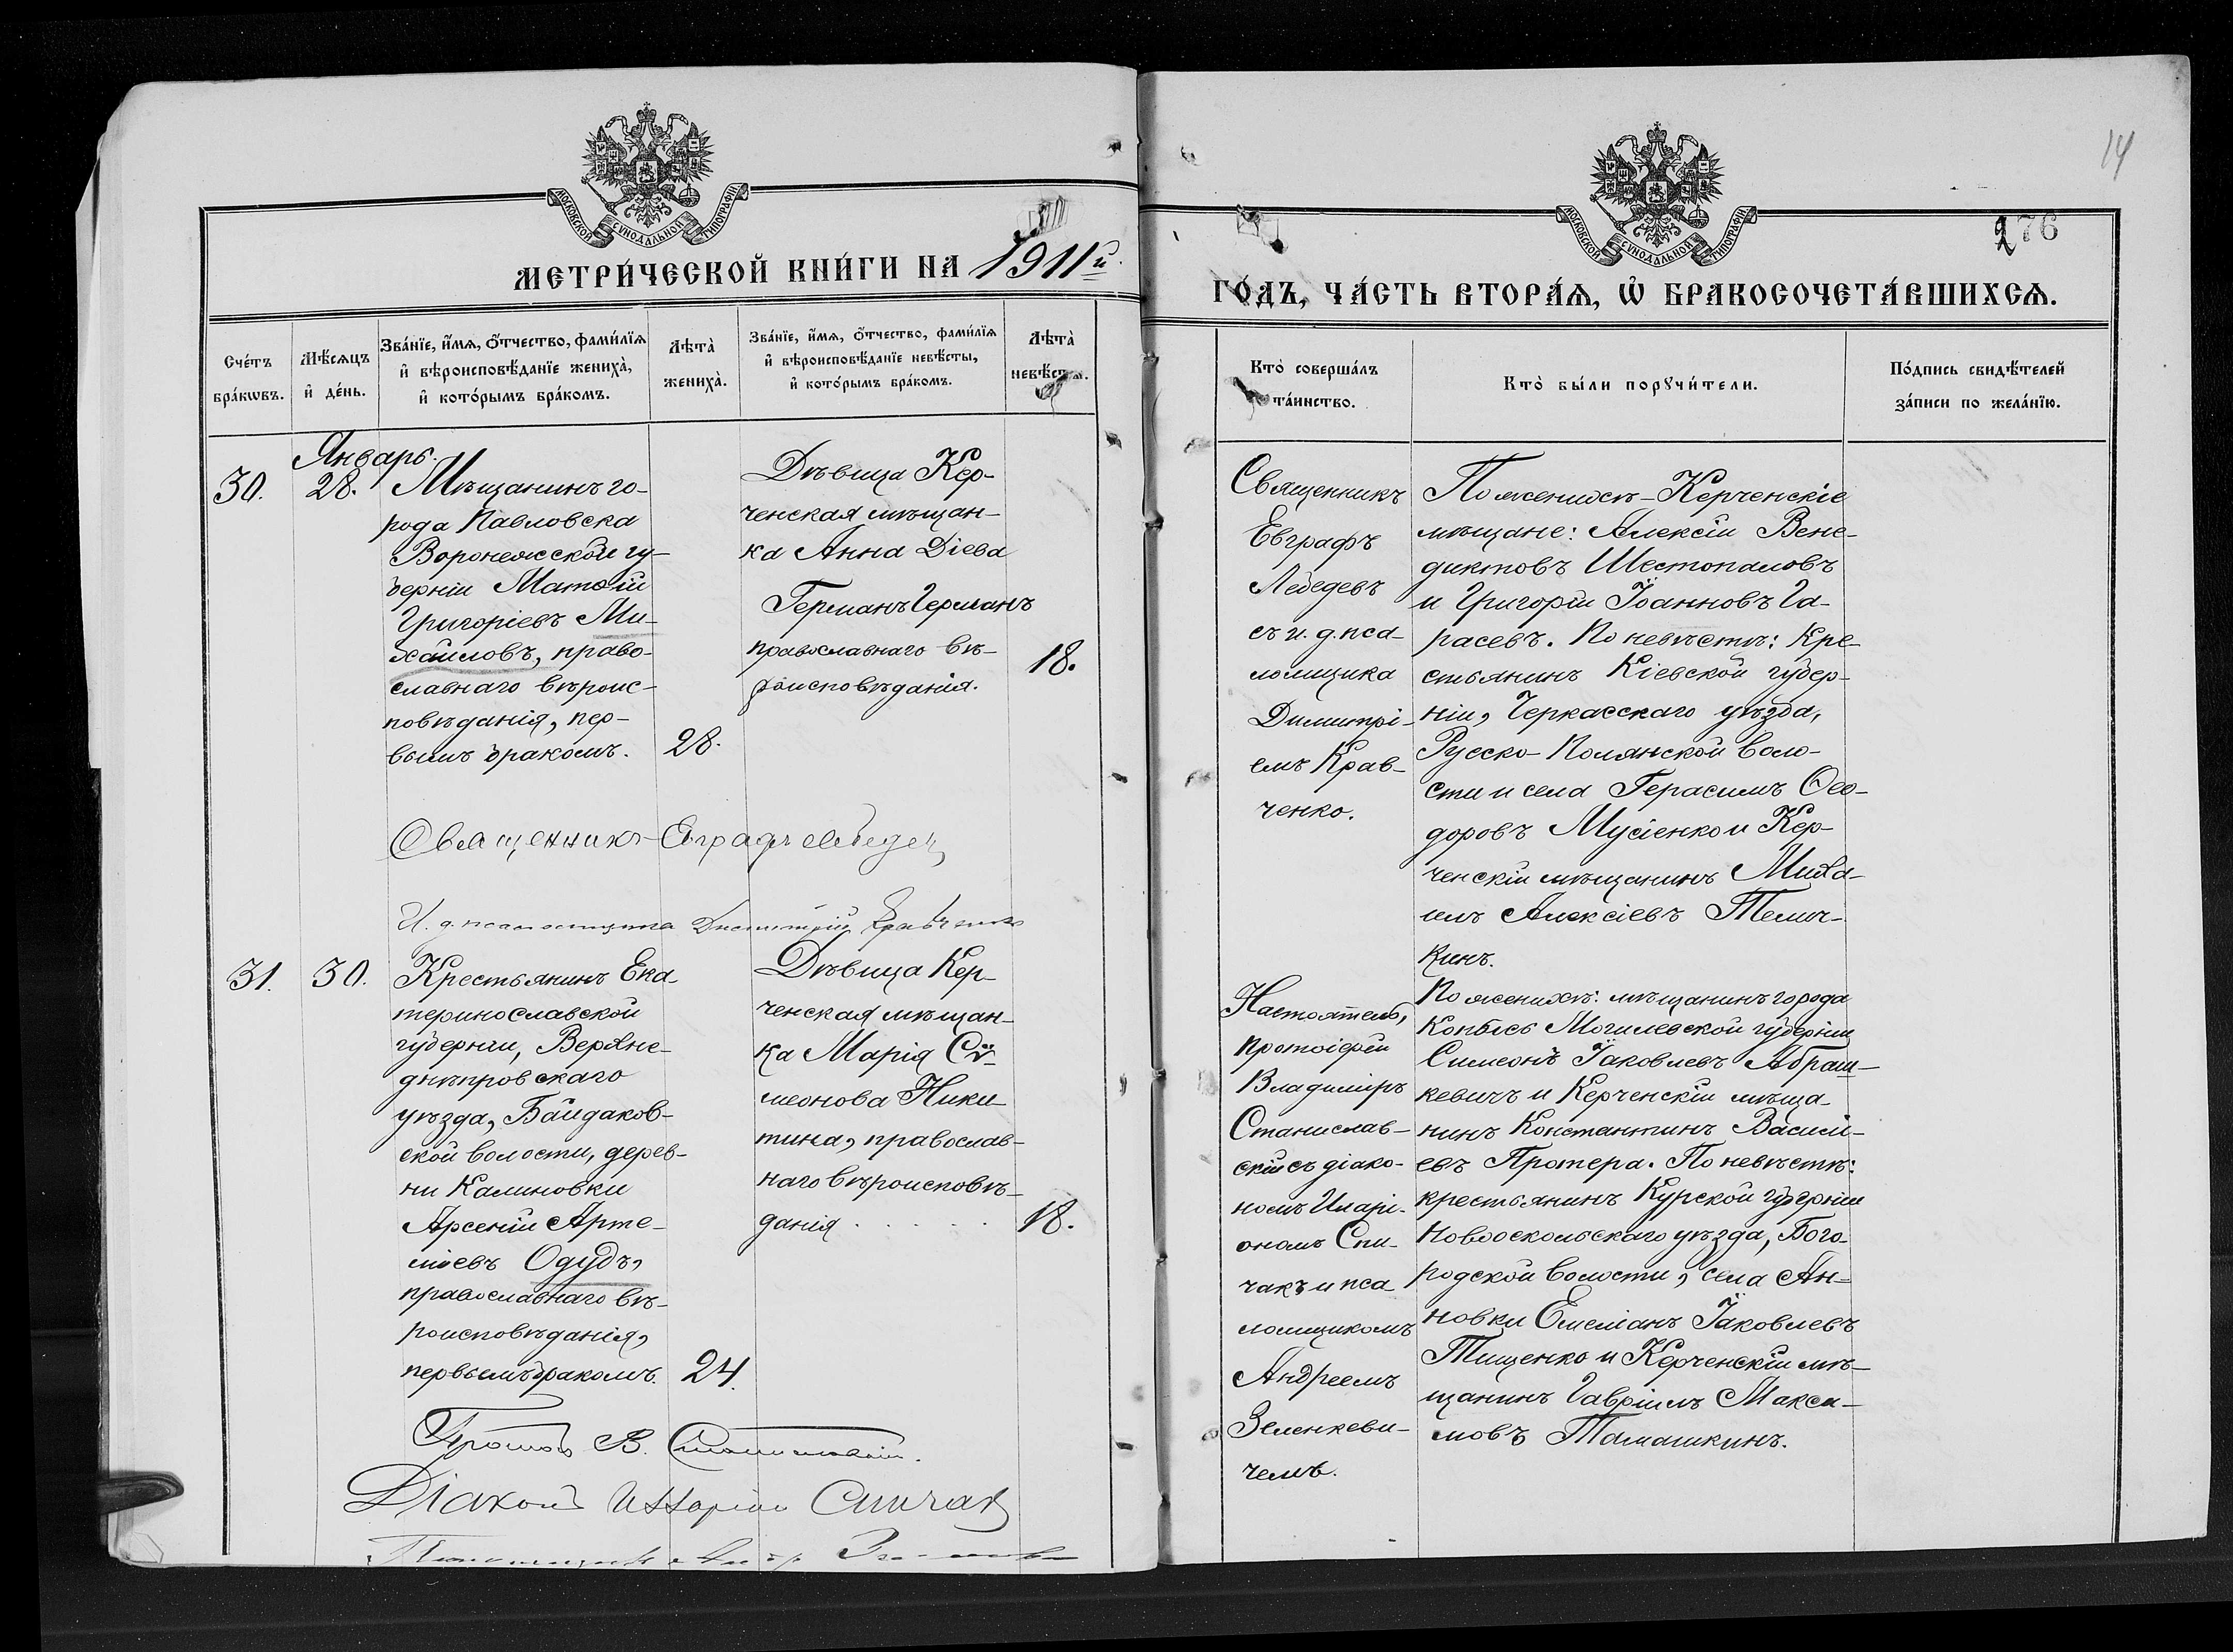 14
276
МОСКОВСКОЙ СУНОДАЛЬНОЙ ТИПОГРАФІИ
МОСКОВСКОЙ СУНОДАЛЬНОЙ ТИПОГРАФІИ
МЕТРИ́ЧЕСКОЙ КНИ́ГИ НА 1911й
ГО́ДЪ, ЧА́СТЬ ВТОРА́Ѧ, Ѡ БРАКОСОЧЕТА́ВШИХСѦ.
Сче́тъ
бра́кѡвъ.
Мѣ́сяцъ
и де́нь.
Зва́нїе, и́мѧ, о́тчество, фами́лїѧ
и вѣроисповѣ́данїе жениха̀,
и кото́рымъ бра́комъ.
Лѣта̀
жениха̀.
Зва́нїе, и́мѧ, о́тчество, фами́лїѧ
и вѣроисповѣ́данїе невѣ́сты,
и кото́рымъ бра́комъ.
Лѣта̀
невѣ́сты.
Кто̀ соверша́лъ
та́инство.
Кто̀ бы́ли порꙋчи́тели.
По́дпись свидѣ́телей
за́писи по жела́нїю.
Январь.
30.
28.
Мѣщанинъ го-
рода Павловска
Воронежской гу-
берніи Матѳій
Григоріевъ Ми-
хайловъ, право-
славнаго вѣроис-
повѣданія, пер-
вымъ бракомъ.
28.
Дѣвица Кер-
ченская мѣщан-
ка Анна Діева
Германъ Германъ
православнаго вѣ-
роисповѣданія.
18.
Священникъ
Евграфъ
Лебедевъ
съ и. д. пса-
ломщика
Димитрі-
емъ Крав-
ченко.
По женихѣ - Керченскіе
мѣщане: Алексій Вене-
диктовъ Шестопаловъ
и Григорій Іоанновъ Га-
расевъ. По невѣстѣ: Кре-
стьянинъ Кіевской губер-
ніи, Черкасскаго уѣзда,
Русско-Полянской воло-
сти и села Герасимъ Ѳео-
доровъ Мусіенко и Кер-
ченскій мѣщанинъ Миха-
илъ Алексіевъ Телич-
кинъ.
Священникъ Евграфъ Лебедевъ
И. д. псаломщика Димитрій Кравченко
31.
30.
Крестьянинъ Ека-
теринославской
губерніи, Верхне-
днѣпровскаго
уѣзда, Байдаков-
ской волости, дерев-
ни Калиновки
Арсеній Арте-
міевъ Одудъ,
православнаго вѣ-
роисповѣданія,
первымъ бракомъ.
24.
Дѣвица Кер-
ченская мѣщан-
ка Марія Сѵ-
меонова Ники-
тина, православ-
наго вѣроисповѣ-
данія . . . . .
18.
Настоятель,
протоіерей
Владиміръ
Станислав-
скій съ діако-
номъ Иларі-
ономъ Спи-
чакъ и пса-
ломщикомъ
Андреемъ
Зеленкеви-
чемъ.
По женихѣ: мѣщанинъ города
Копысь Могилевской губерніи
Симеонъ Іаковлевъ Абраш-
кевичъ и Керченскій мѣща-
нинъ Константинъ Василі-
евъ Протера. По невѣстѣ:
крестьянинъ Курской губерніи
Новооскольскаго уѣзда, Бого-
родской волости, села Ан-
новки Емеліанъ Іаковлевъ
Тищенко и Керченскій мѣ-
щанинъ Гавріилъ Макси-
мовъ Тамашкинъ.
В. Станиславскій.
Діаконъ Иларіонъ Спичакъ